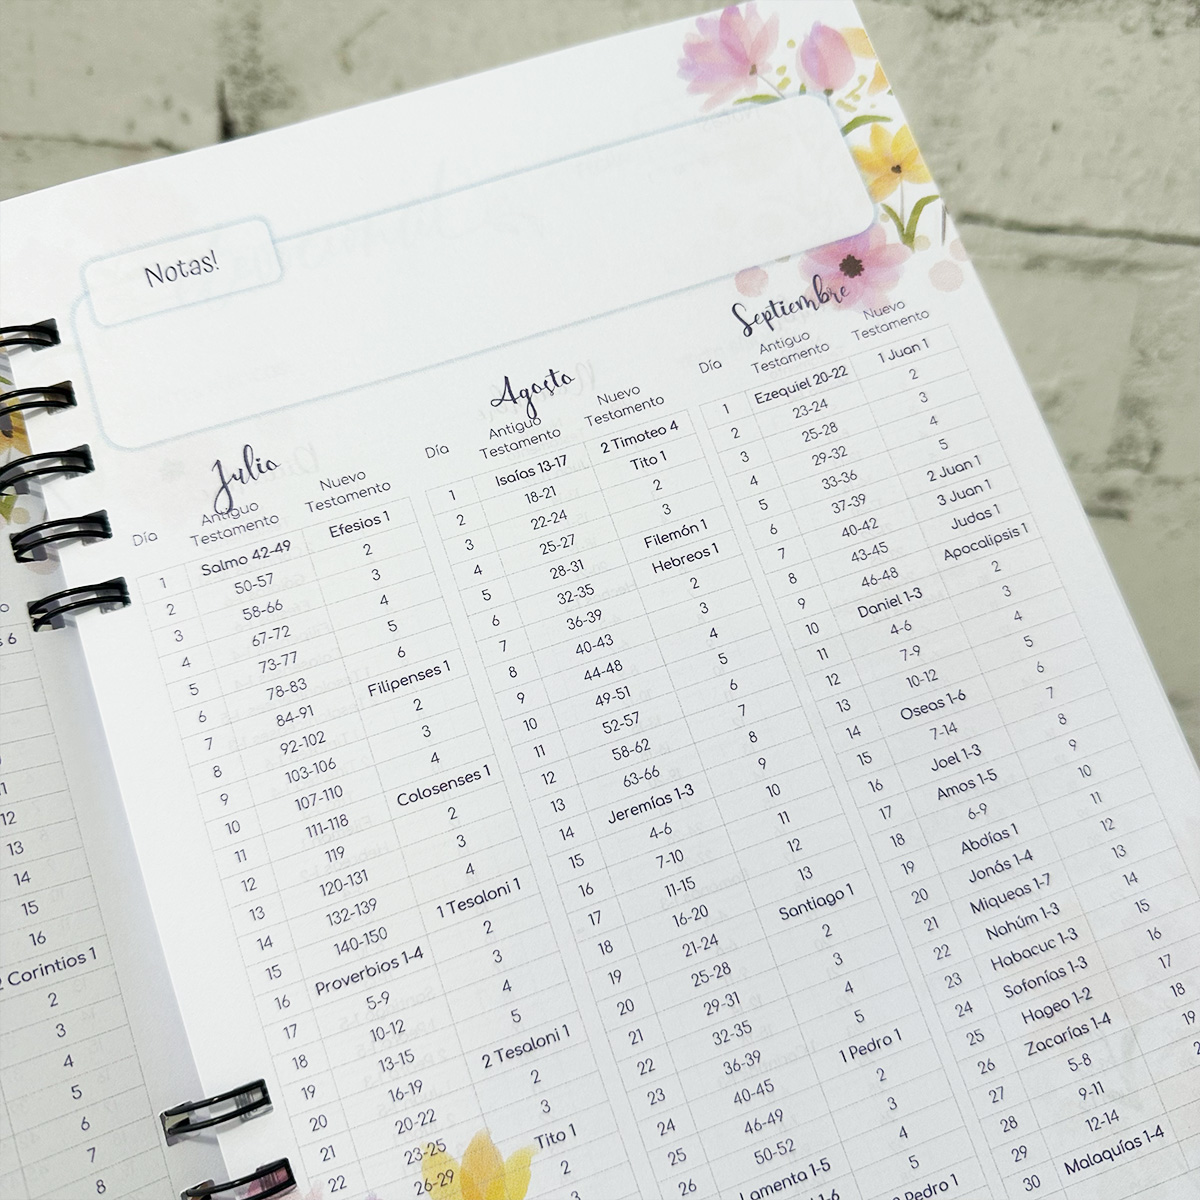 6
12
13
14
15
16
2 Corintios 1
2
3
4
5
6
7
8
Notas!
Julio
Día Antiguo Testamento Nuevo Testamento
1 Salmo 42-49 Efesios 1
2 50-57 2
3 58-66 3
4 67-72 4
5 73-77 5
6 78-83 6
7 84-91 Filipenses 1
8 92-102 2
9 103-106 3
10 107-110 4
11 111-118 Colosenses 1
12 119 2
13 120-131 3
14 132-139 4
15 140-150 1 Tesaloni 1
16 Proverbios 1-4 2
17 5-9 3
18 10-12 4
19 13-15 5
20 16-19 2 Tesaloni 1
21 20-22 2
22 23-25 3
26-29 Tito 1
2
3
Agosto
Día Antiguo Testamento Nuevo Testamento
1 Isaías 13-17 2 Timoteo 4
2 18-21 Tito 1
3 22-24 2
4 25-27 3
5 28-31 Filemón 1
6 32-35 Hebreos 1
7 36-39 2
8 40-43 3
9 44-48 4
10 49-51 5
11 52-57 6
12 58-62 7
13 63-66 8
14 Jeremías 1-3 9
15 4-6 10
16 7-10 11
17 11-15 12
18 16-20 13
19 21-24 Santiago 1
20 25-28 2
21 29-31 3
22 32-35 4
23 36-39 5
24 40-45 1 Pedro 1
25 46-49 2
26 50-52 3
Lamenta 1-5 4
5
Pedro 1
Septiembre
Día Antiguo Testamento Nuevo Testamento
1 Ezequiel 20-22 1 Juan 1
2 23-24 2
3 25-28 3
4 29-32 4
5 33-36 5
6 37-39 2 Juan 1
7 40-42 3 Juan 1
8 43-45 Judas 1
9 46-48 Apocalipsis 1
10 Daniel 1-3 2
11 4-6 3
12 7-9 4
13 10-12 5
14 Oseas 1-6 6
15 7-14 7
16 Joel 1-3 8
17 Amos 1-5 9
18 6-9 10
19 Abdías 1 11
20 Jonás 1-4 12
21 Miqueas 1-7 13
22 Nahúm 1-3 14
23 Habacuc 1-3 15
24 Sofonías 1-3 16
25 Hageo 1-2 17
26 Zacarías 1-4 18
27 5-8 19
28 9-11
29 12-14
30 Malaquías 1-4